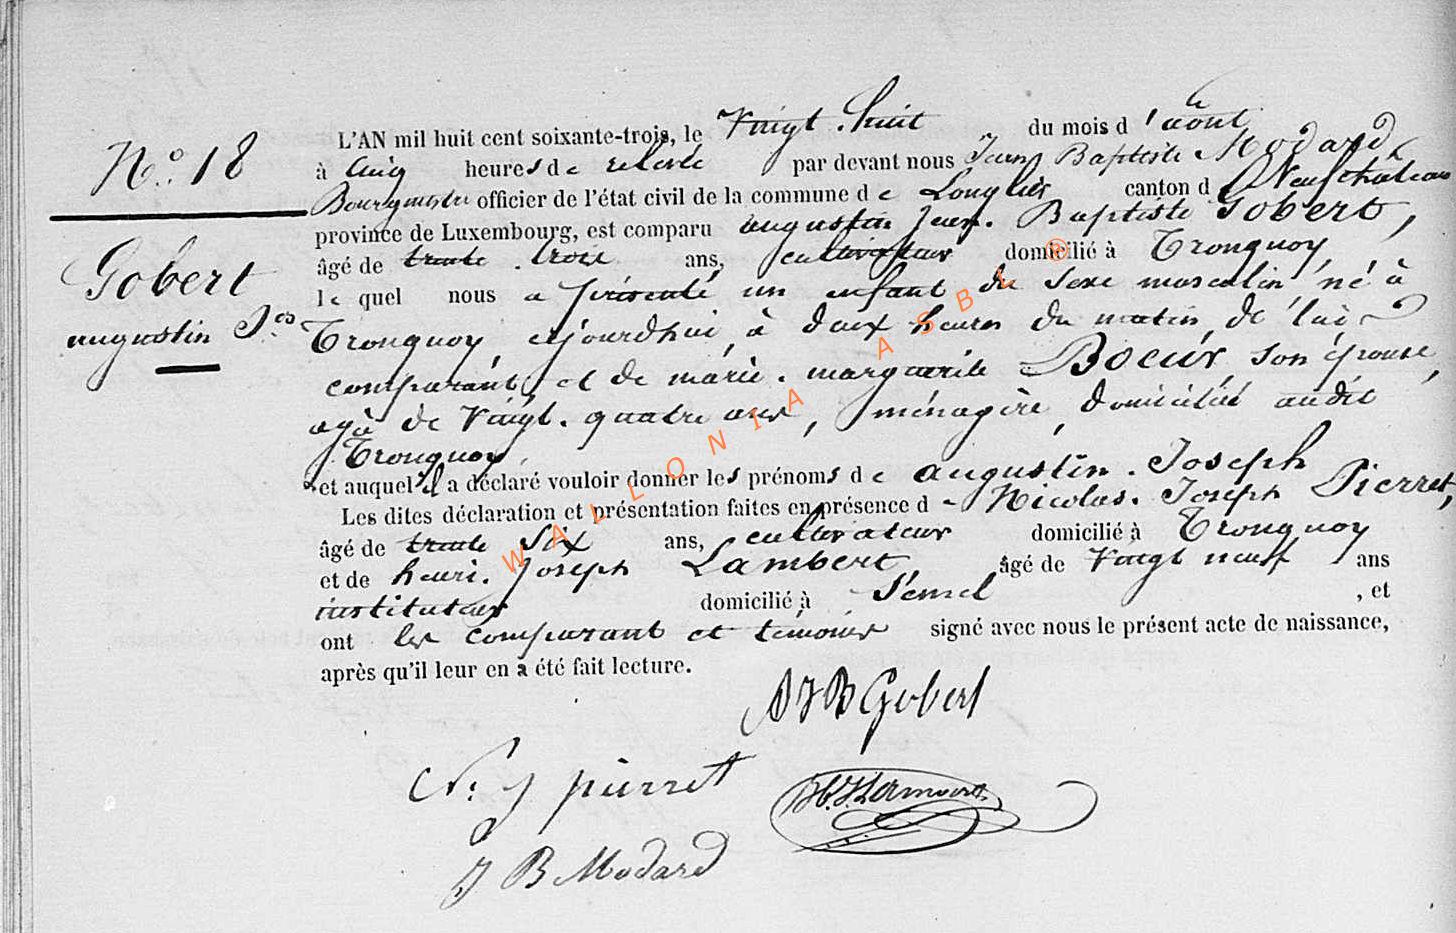 N.° 18
Gobert
augustin J.es
L'AN mil huit cent soixante-trois, le Vingt. huit du mois d'août
à Cinq heures de relevée par devant nous Jean Baptiste Modard
Bourgmestre officier de l'état civil de la commune de Longlier canton d Neufchateau
province de Luxembourg, est comparu augustin Jean. Baptiste Gobert,
âgé de trente. trois ans, cultivateur domicilié à Tronquoy
le quel nous a présenté un enfant du sexe masculin né à
Tronquoy, aujourdhui, à deux heures du matin, de lui
comparant, et de marie. marguerite Boeur, son épouse,
agée de Vingt. quatre ans, ménagère, domiciliés audit
Tronquoy,
et auquel il a déclaré vouloir donner les prénoms de augustin. Joseph
Les dites déclaration et présentation faites en présence d - Nicolas. Joseph Pierret
âgé de trente six ans, cultivateur domicilié à Tronquoy
et de henri. Joseph Lambert, âgé de Vingt neuf ans
instituteur domicilié à Semel , et
ont les comparant et témoins signé avec nous le présent acte de naissance,
après qu'il leur en a été fait lecture.
A J B Gobert
N. J pierret
H. J. Lambert.
J B Modard
WALLONIA ASBL ®